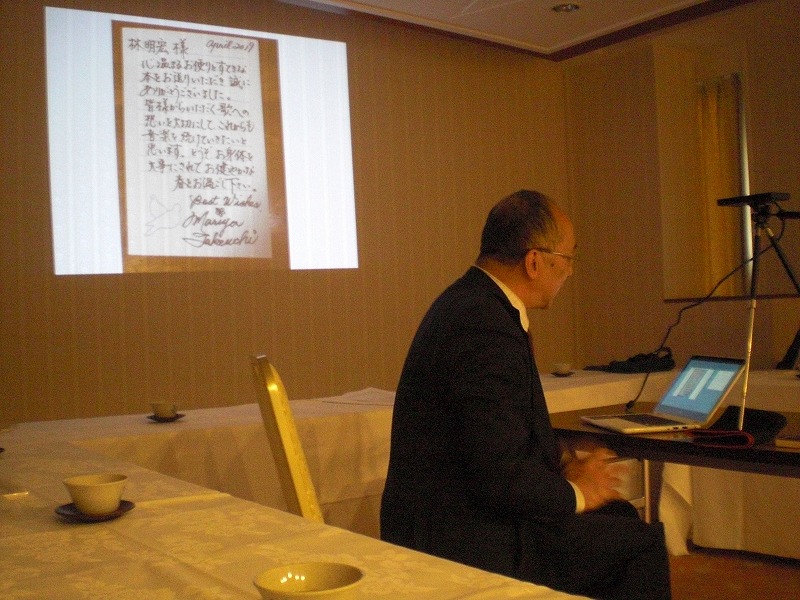 林明宏様 April 2019
心温まるお便りとすてきな
本をお送りいただき 誠に
ありがとうございました。
皆様からいただく歌への
想いを大切にして これからも
音楽を続けていきたいと
思います。どうぞ お身体を
大事にされて お健やかな
春をお過ごし下さい。
Best Wishes
Mariya
Takeuchi